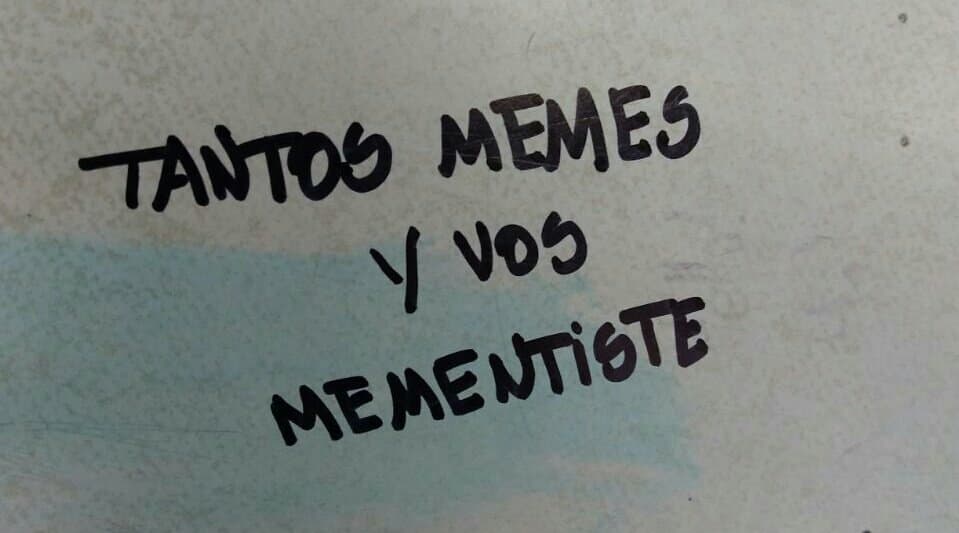 TANTOS MEMES
Y VOS
MEMENTISTE